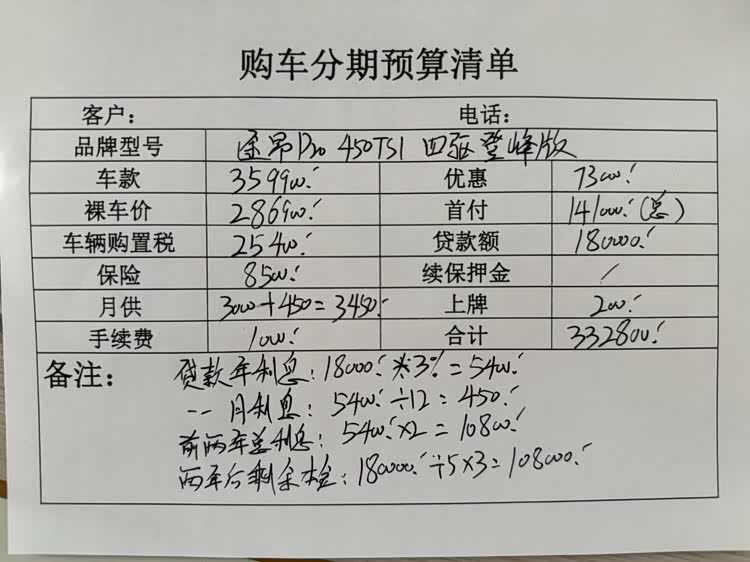 购车分期预算清单
客户: 电话:
品牌型号 途昂Pro 450TSI 四驱登峰版
车款 359900 优惠 73000
裸车价 286900 首付 141000(总)
车辆购置税 25400 贷款额 180000
保险 8500 续保押金 /
月供 3000+450=3450 上牌 200
手续费 1000 合计 332800
备注: 贷款年利息:18000※3%=5400
-- 月利息:5400÷12=450
前两年总利息:5400×2=10800
两年后剩余本金:180000÷5×3=108000